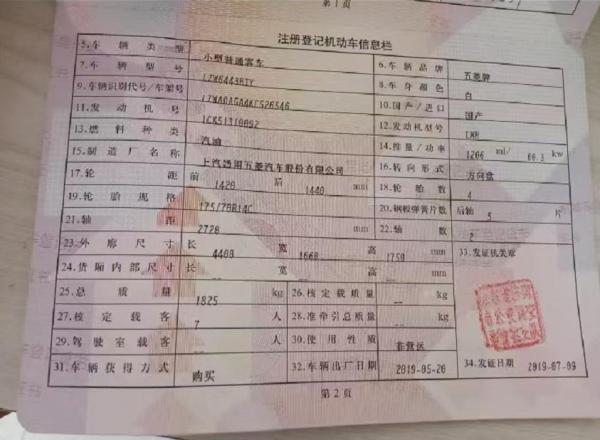 第1页
注册登记机动车信息栏
5.车辆类型 小型普通客车 6.车辆品牌 五菱牌
7.车辆型号 8.车身颜色 白
9.车辆识别代号/车架号 10.国产/进口 国产
11.发动机号 12.发动机型号
13.燃料种类 汽油 14.排量/功率 1206 ml/ kw
15.制造厂名称 上汽通用五菱汽车股份有限公司 16.转向形式 方向盘
17.轮距 前 1420 后 1440 mm 18.轮胎数 4
19.轮胎规格 175/70R14C 20.钢板弹簧片数 后轴 5 片
21.轴距 2720 mm 22.轴数 2
23.外廓尺寸 长 4400 宽 1660 高 1750 mm 33.发证机关章
24.货厢内部尺寸 长 -- 宽 -- 高 -- mm
25.总质量 1825 kg 26.核定载质量 -- kg
27.核定载客 7 人 28.准牵引总质量 -- kg
29.驾驶室载客 -- 人 30.使用性质 非营运
31.车辆获得方式 购买 32.车辆出厂日期 2019-05-20 34.发证日期 2019-07-09
第2页